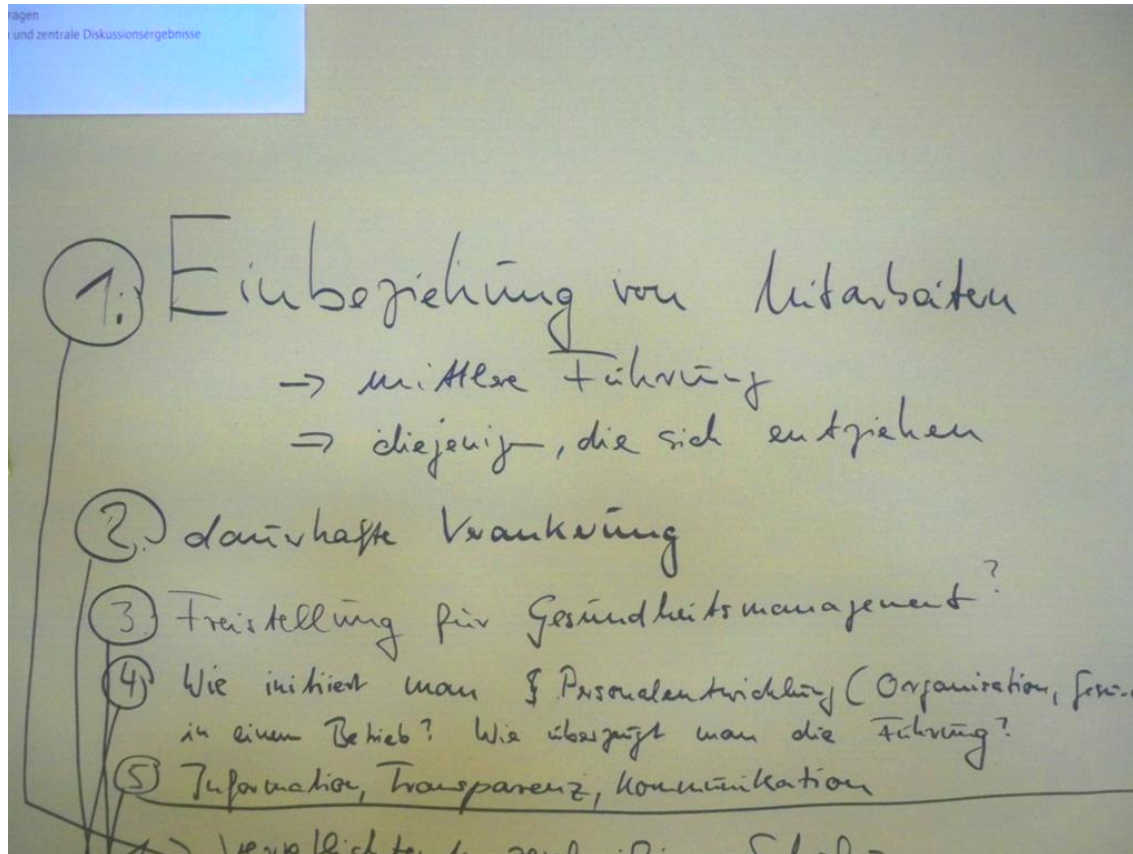 ragen
und zentrale Diskussionsergebnisse
1. Einbeziehung von Mitarbeitern
→ mittlere Führung
⇒ diejenigen, die sich entziehen
2. dauerhafte Verankerung
3 Freistellung für Gesundheitsmanagement?
4 Wie initiiert man Personalentwicklung (Organisation,
in einem Betrieb? Wie überzeugt man die Führung?
5 Information, Transparenz, Kommunikation